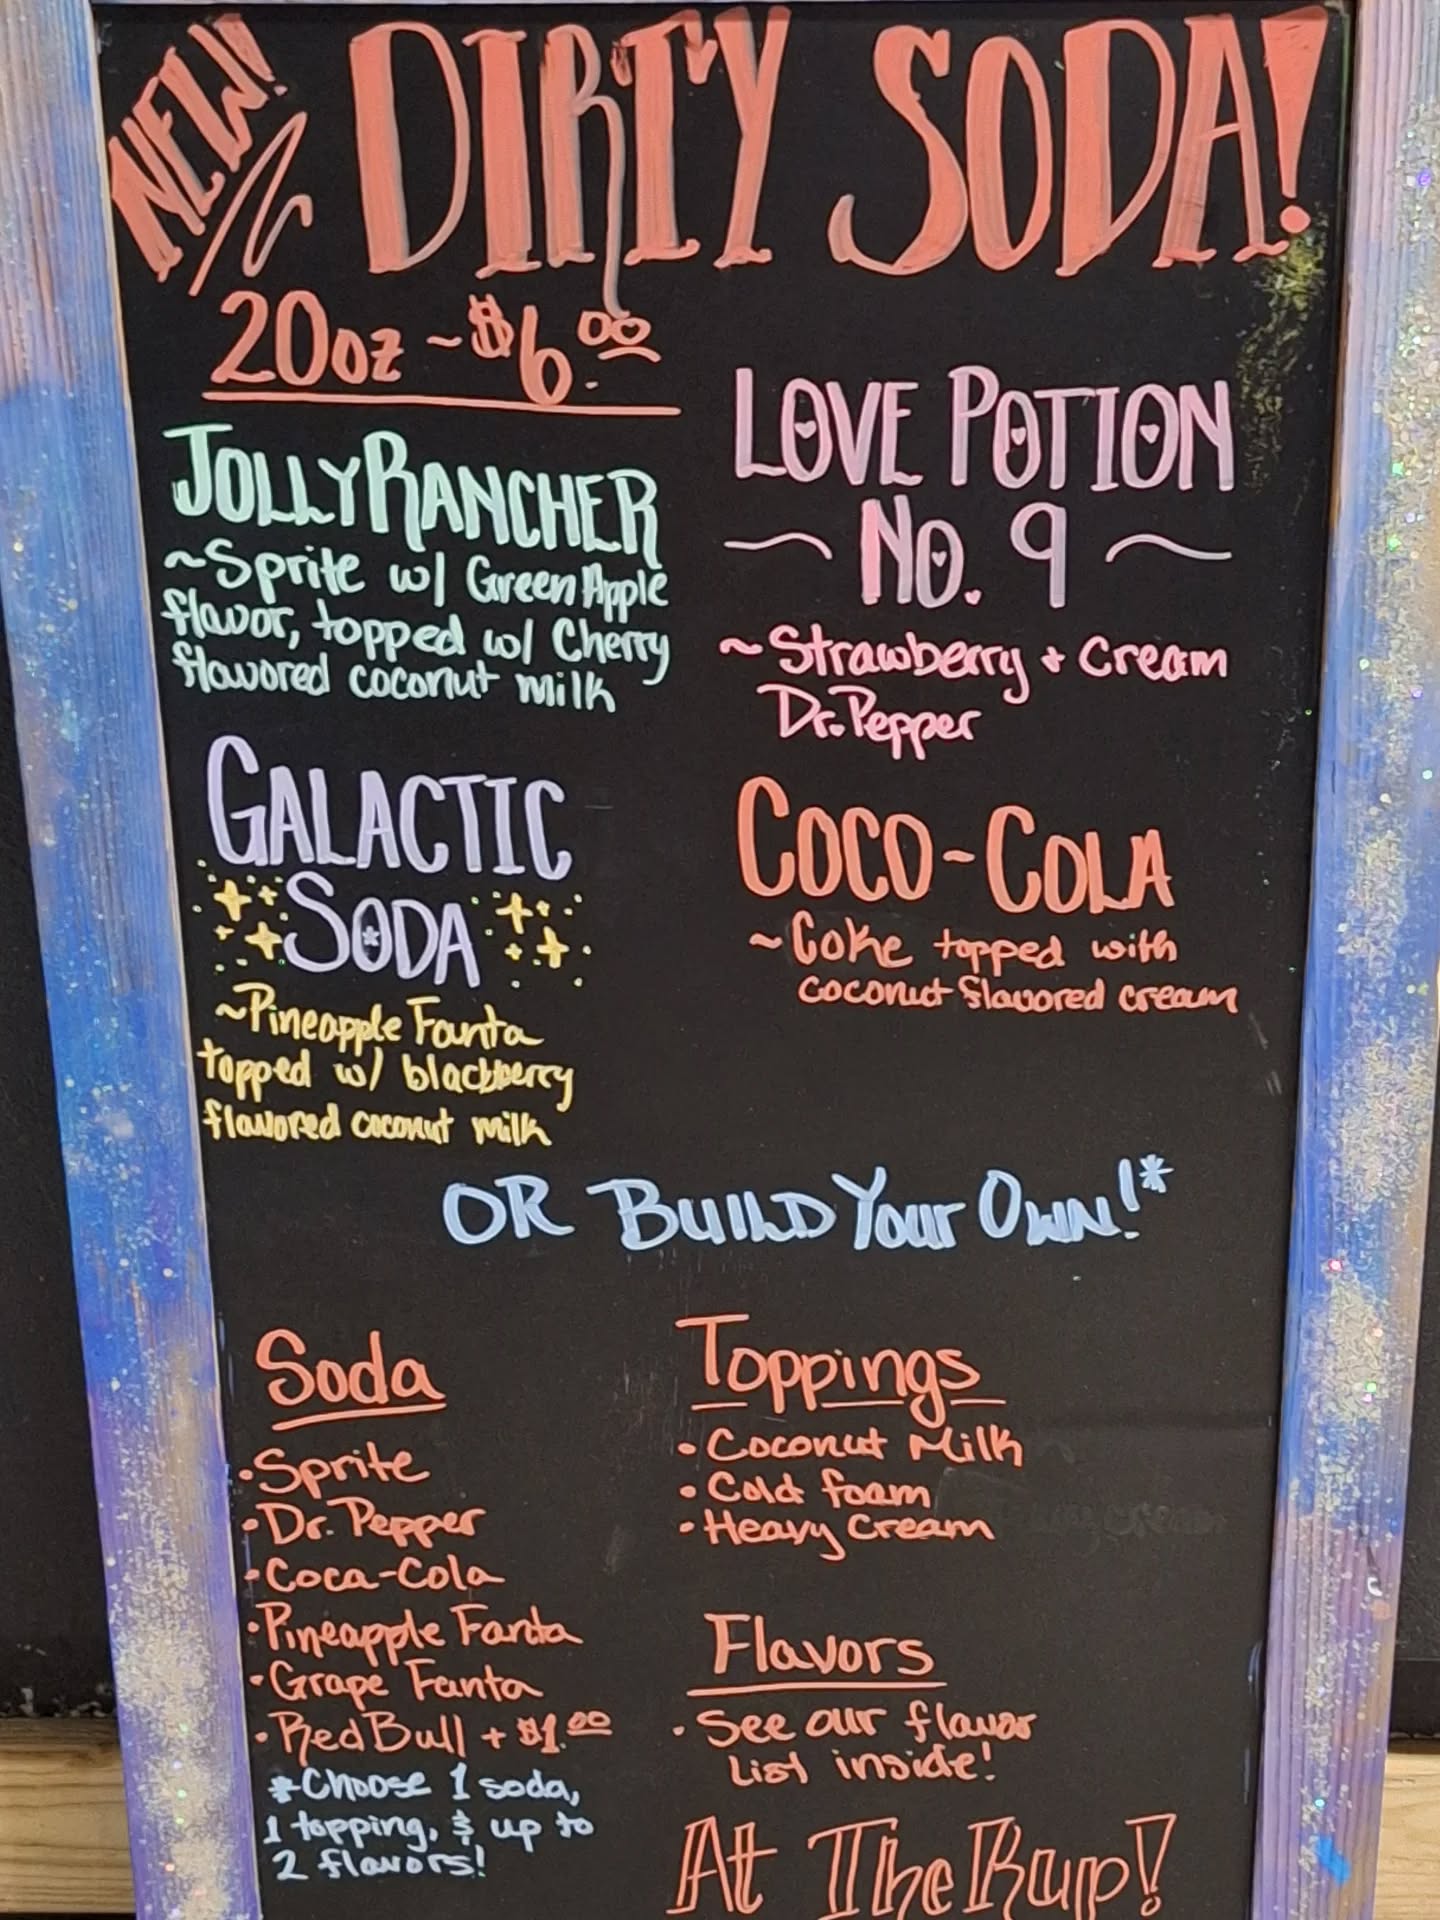 NEW!
DIRTY SODA!
20oz ~ $6.00
JOLLY RANCHER
~Sprite w/ Green Apple
flavor, topped w/ Cherry
flavored coconut milk
LOVE POTION
~ No. 9 ~
~ Strawberry + Cream
Dr. Pepper
GALACTIC
SODA
~Pineapple Fanta
topped w/ blackberry
flavored coconut milk
COCO-COLA
~ Coke topped with
coconut flavored cream
OR BUILD YOUR OWN!*
Soda
• Sprite
• Dr. Pepper
• Coca-Cola
• Pineapple Fanta
• Grape Fanta
• Red Bull + $1.00
*Choose 1 soda,
1 topping, & up to
2 flavors!
Toppings
• Coconut Milk
• Cold foam
• Heavy Cream
Flavors
• See our flavor
List inside!
At The Kup!